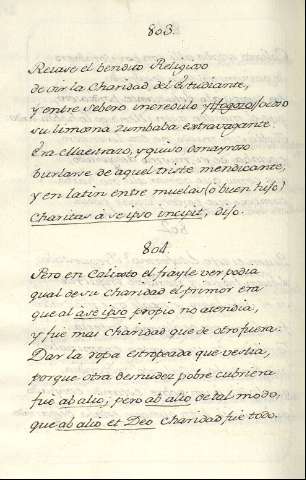 803.
Reiase el bendito Religioso
de oir la Charidad del Estudiante,
y entre severo incredulo y
su limosna zumbaba extravagante.
Era Maestrazo, y quiso
burlarse de aquel triste mendicante,
y en latin entre muelas (ó buen hijo)
Charitas á se ipso incipit, dijo.
804.
Pero en Calixto el frayle ver podia
qual de su charidad el primor era
que al áse ipso propio no atendia,
y fue mas charidad que de otro fuera:
Dar la ropa estropeada que vestia,
porque otra desnudez pobre cubriera
fué ab alio, pero ab alio de tal modo,
que ab alio et Deo charidad fue todo.